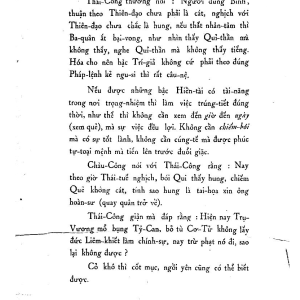 Thái-Công thường nói : Người dùng Binh,
thuận theo Thiên-đạo chưa phải là cát, nghịch với
Thiên-đạo chưa chắc là hung, nếu thất nhân-tâm thì
Ba-quân ắt bại-vong, như nhìn thấy Quỉ-thần mà
không thấy, nghe Quỉ-thần mà không thấy tiếng.
Hóa cho nên bậc Trí-giả không cứ phải theo đúng
Pháp-lệnh kẻ ngu-si thì rất câu-nệ.
Nếu được những bậc Hiền-tài có tài-năng
trong nơi trọng-nhiệm thì làm việc trúng-tiết đúng
thời, như thế thì không cần xem đến giờ đến ngày
(xem quẻ), mà sự việc đều lợi. Không cần chiêm-bói
mà có sự tốt lành, không cần cúng-tế mà được phúc
tự-toại mệnh mà tiến lên trước đuổi giặc.
Châu-Công nói với Thái-Công rằng : Nay
theo giờ Thái-tuế nghịch, bói Qui thấy hung, chiêm
Quẻ không cát, tinh sao hung là tai-họa xin ông
hoàn-sư (quay quân trở về).
Thái-Công giận mà đáp rằng : Hiện nay Trụ-
Vương mổ bụng Tỷ-Can, bỏ tù Cơ-Tử không lấy
đức Liêm-khiết làm chính-sự, nay trừ phạt nó đi, sao
lại không được ?
Cỏ khô thì cốt mục, ngồi yên cũng có thể biết
được.